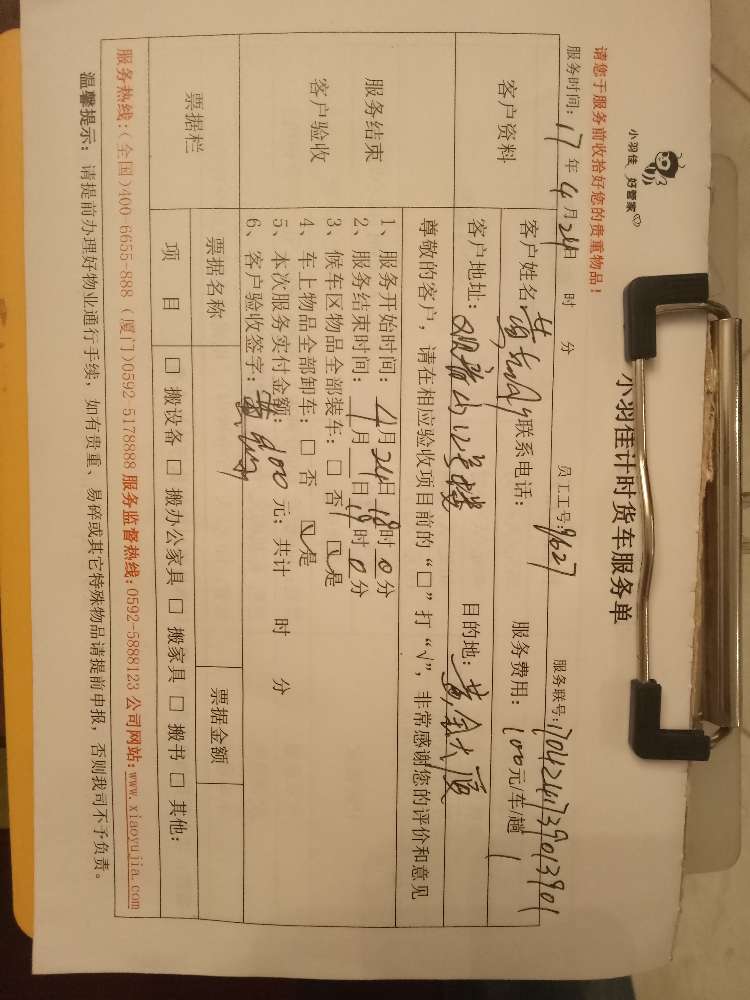 小羽佳 好管家
小羽佳计时货车服务单
请您于服务前收拾好您的贵重物品！
服务时间：17年4月24日 时 分 员工工号：9627 服务联号：
客户资料
客户姓名： 联系电话： 服务费用：100元/车/趟
客户地址： 目的地：黄金大厦
尊敬的客户，请在相应验收项目前的“□”打“√”，非常感谢您的评价和意见
服务结束
客户验收
1、服务开始时间：4月24日18时0分
2、服务结束时间： 月 日19时0分
3、候车区物品全部装车：□ 否 ☑是
4、车上物品全部卸车：□ 否 ☑是
5、本次服务实付金额：100元；共计 时 分
6、客户验收签字：
票据栏
票据名称 票据金额
项 目 □ 搬设备 □ 搬办公家具 □ 搬家具 □ 搬书 □ 其他：
服务热线：（全国）400-6655-888（厦门）0592-5178888 服务监督热线：0592-5888123 公司网站：www.xiaoyujia.com
温馨提示：请提前办理好物业通行手续，如有贵重、易碎或其它特殊物品请提前申报，否则我司不予负责。